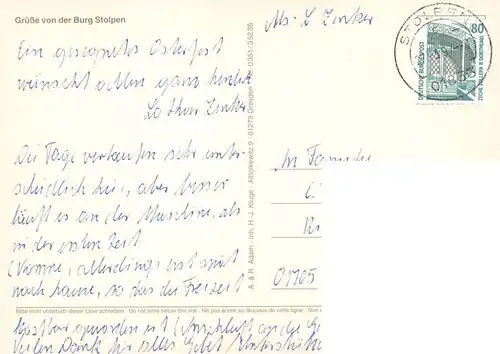 Grüße von der Burg Stolpen
Abs. L Zenker
Ein gesegnetes Osterfest
wünscht allen ganz herzl.
Lothar Zenker
Die Tage verlaufen sehr unter-
schiedlich hier, aber besser
läuft es an der Maschine, als
in der ersten Zeit
(Komme, allerdings erst spät
nach hause, so das die Freizeit
kostbar geworden ist (Anschluß an die G
Vielen Dank für alles Gebet
An Familie
01705
A. & R. Adam · Inh. H.-J. Kluge · Alttolkewitz 9 · 01279 Dresden · Tel. 0351/35235
Bitte nicht unterhalb dieser Linie schreiben Do not write below this line Ne pas écrire au-dessous de cette ligne Non
STOLPEN
01833
80
DEUTSCHE BUNDESPOST
ZECHE ZOLLERN II DORTMUND